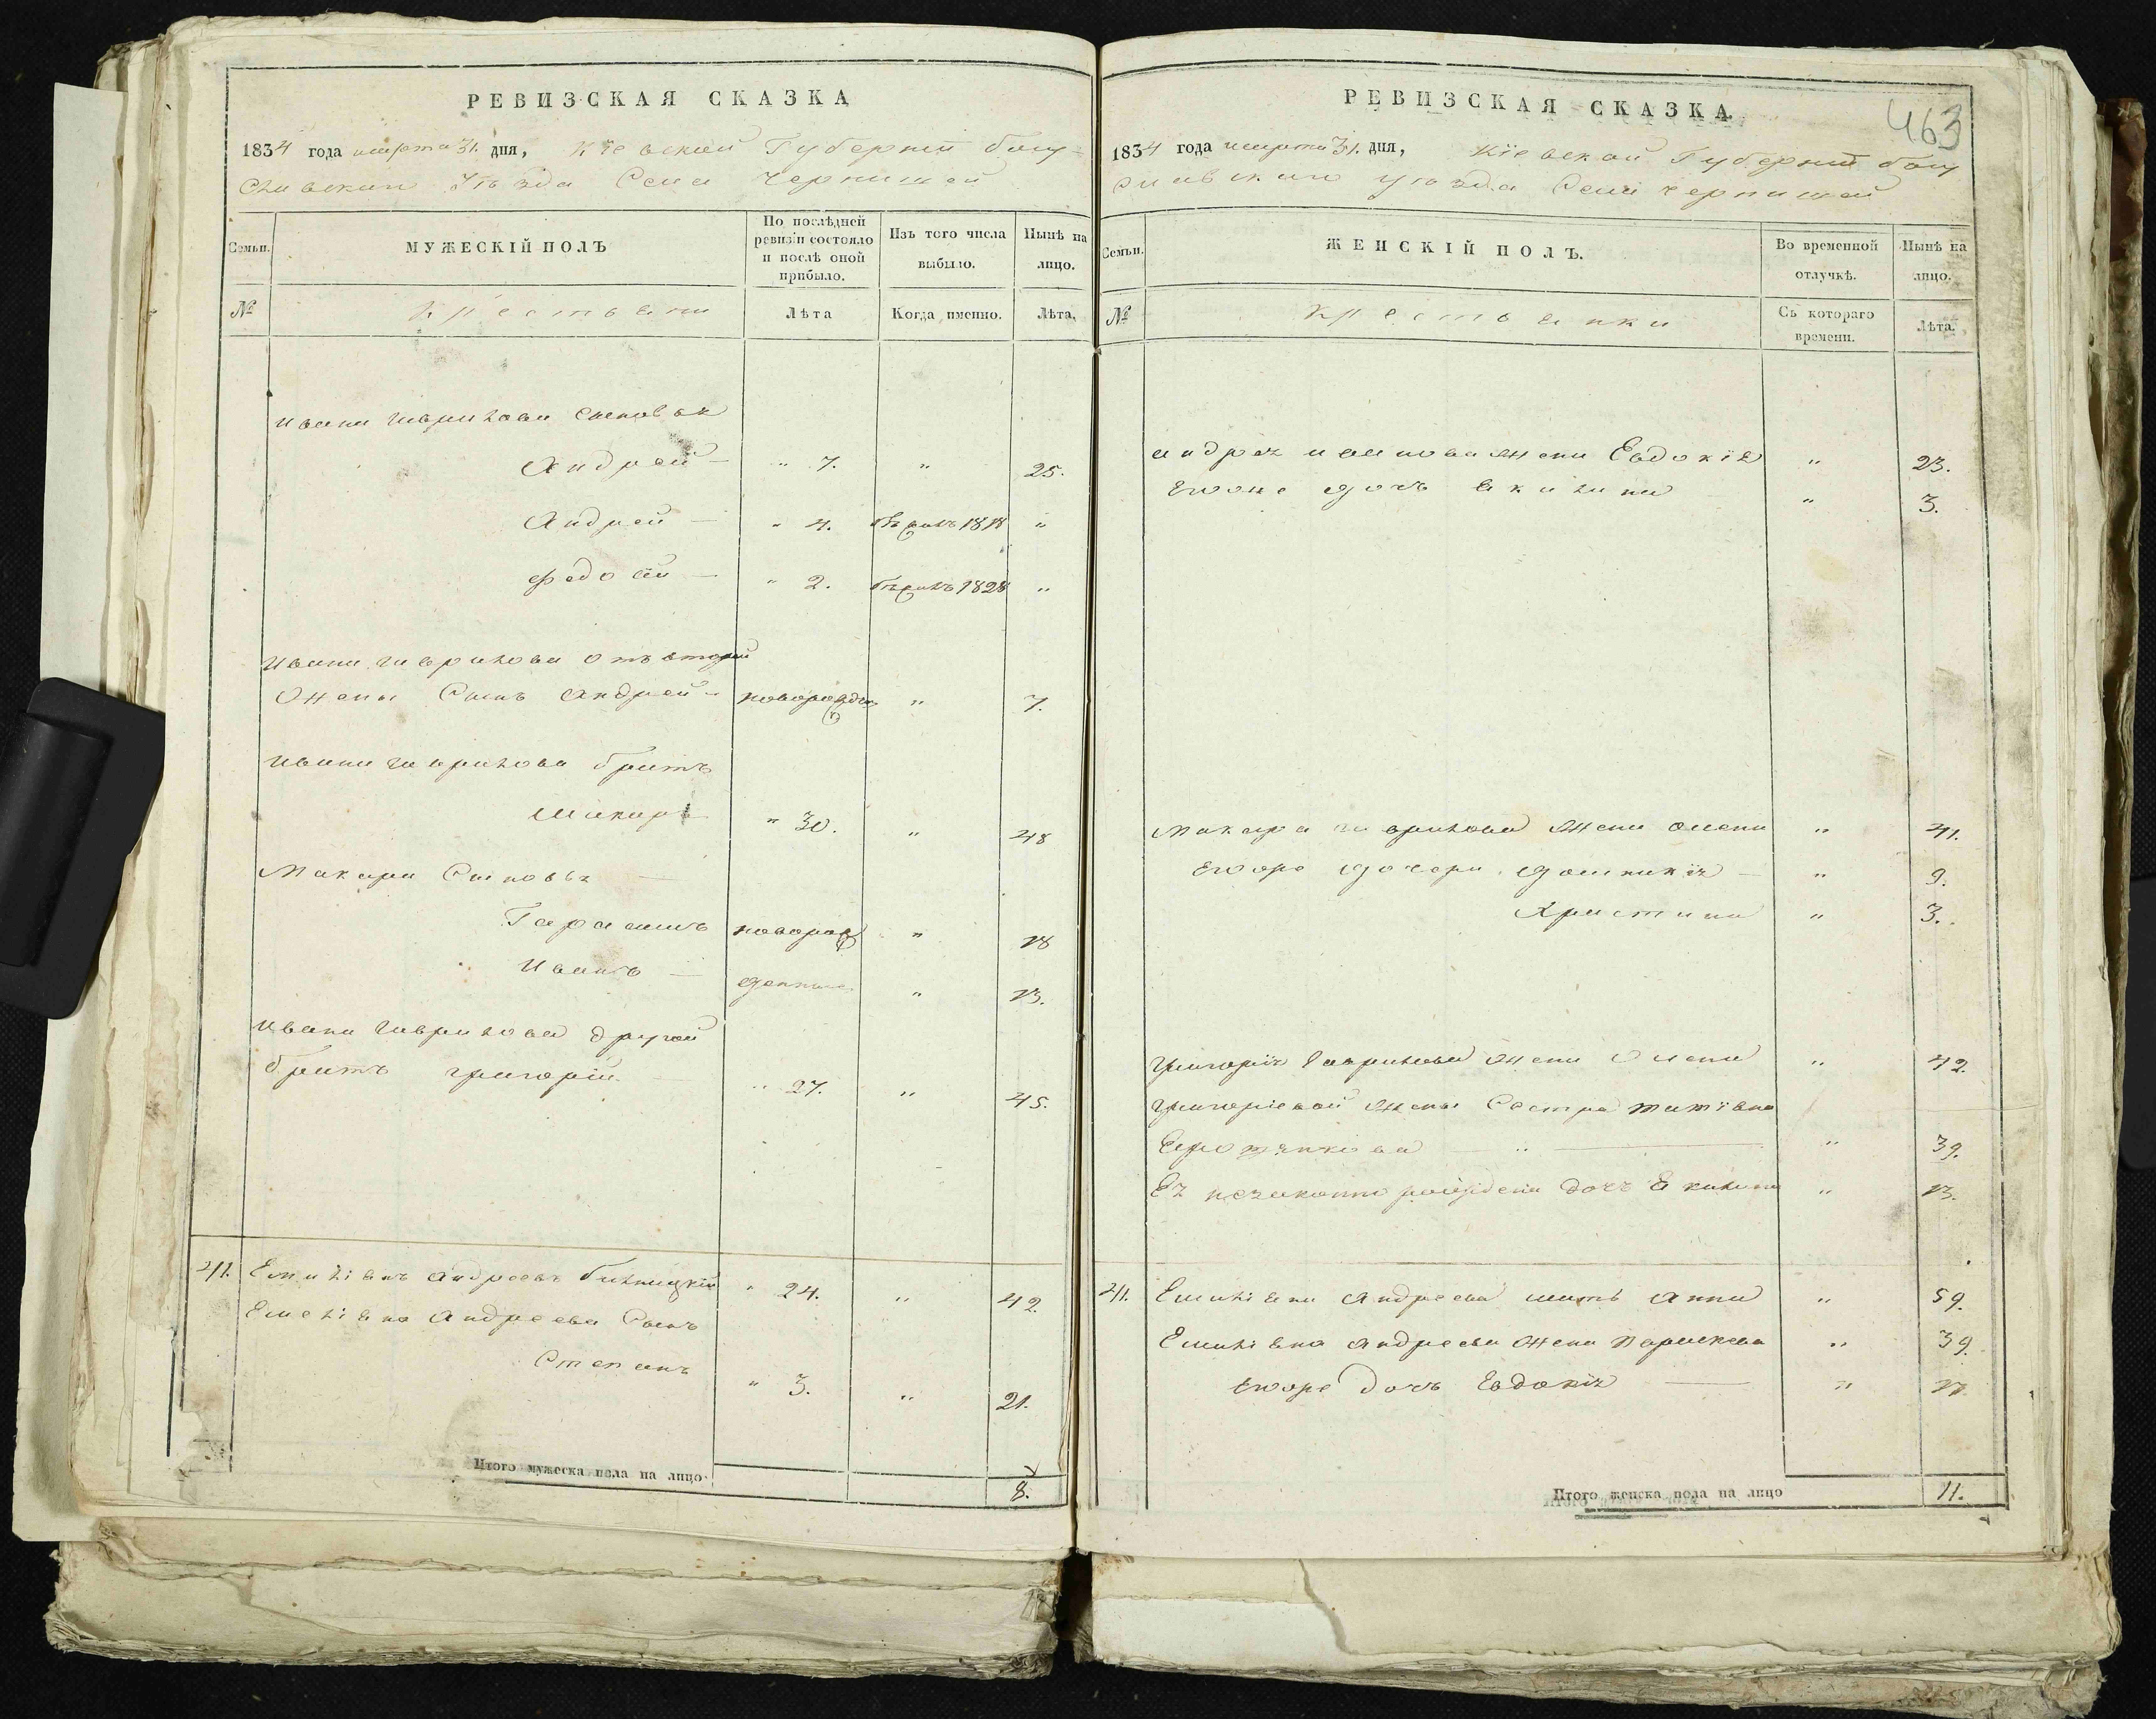 РЕВИЗСКАЯ СКАЗКА
1834 года марта 31. дня, Кіевской Губерніи богу-
славскаго Уѣзда Села Чернышей
Семьи.
МУЖЕСКІЙ ПОЛЪ
По послѣдней ревизіи состояло и послѣ оной прибыло.
Изъ того числа выбыло.
Нынѣ на лицо.
№
Крестьяни
Лѣта
Когда именно.
Лѣта.
Ивана Гаврилова Сыновья
Андрей — " 7. " 25.
Андрей — " 4. 1818 "
Федосій — " 2. 1828 "
Ивана Гаврилова отъ второй
Жены Сынъ Андрей — новорожден " 7.
Ивана Гаврилова братъ
Макаръ " 30. " 48
Макара Сыновья —
Герасимъ новорож " 18
Иванъ — денные " 13.
Ивана Гаврилова другой
братъ Григорій. " 27. " 45.
41. Емиліянъ Андреевъ " 24. " 42.
Емеліяна Андреева Сынъ
Степанъ " 3. " 21.
Итого мужеска пола на лицо 8.
РЕВИЗСКАЯ СКАЗКА
463
1834 года марта 31. дня, Кіевской Губерніи богу
славскаго уѣзда Села Чернышей
Семьи.
ЖЕНСКІЙ ПОЛЪ.
Во временной отлучкѣ.
Нынѣ на лицо.
№
Крестьянки
Съ котораго времени.
Лѣта.
Андрея Иванова жена Евдокія " 23.
Егоже дочь Акилина " 3.
Макара Гаврилова жена Олена " 41.
Егоже дочери Домникія — " 9.
Христина " 3.
Григорія Гаврилова жена Олена " 42.
Григоріевой жены Сестра Татіяна
— " — " 39.
Ея незаконно рожденна дочь Акилина " 13.
41. Емиліяна Андреева мать Анна " 59.
Емиліяна Андреева жена Параскева " 39.
Егоже дочь Евдокія — "
Итого женска пола на лицо 11.